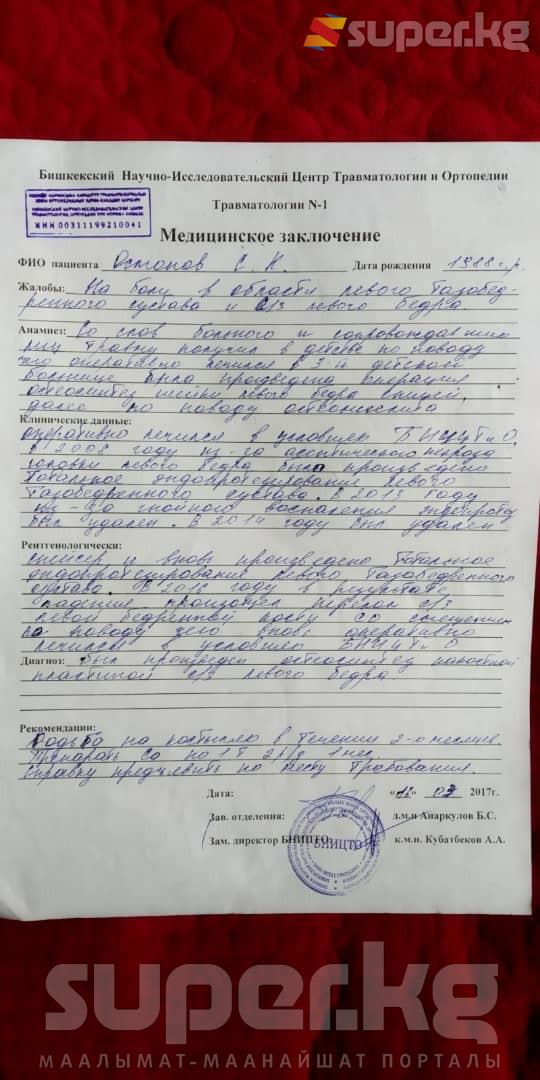 super.kg
Бишкекский Научно-Исследовательский Центр Травматологии и Ортопедии
Травматологии N-1
ИНН 00311199210041
Медицинское заключение
ФИО пациента Осмонов С. К. Дата рождения 1988 г.р.
Жалобы: На боли в области левого тазобед-
ренного сустава и с/3 левого бедра.
Анамнез: Со слов больного и
лиц травму получил в детстве по поводу
чего оперативно лечился в 3-й детской
больнице была произведена операция
остеосинтез шейки левого бедра спицей,
далее по поводу остеомиелита
Клинические данные:
оперативно лечился в условиях БНИЦТиО.
В 2008 году из-за асептического некроза
головки левого бедра было произведено
тотальное эндопротезирование левого
тазобедренного сустава. В 2013 году
из-за гнойного воспаления эндопротез
был удален. В 2014 году был удален
Рентгенологически:
спейсер и вновь произведено тотальное
эндопротезирование левого тазобедренного
сустава. В году в результате
падения произошел перелом с/3
левой бедренной кости со смещением
по поводу чего вновь оперативно
лечился в условиях БНИЦТиО
Диагноз: был произведен остеосинтез накостной
пластиной с/3 левого бедра.
Рекомендации:
Ходьба на костылях в течении 2-х месяцев.
Препараты Са по 1т 1 мес.
Справку предъявить по месту требования.
Дата: «12» 03 2017г.
Зав. отделения: д.м.н Анаркулов Б.С.
Зам. директор БНИЦТО к.м.н. Кубатбеков А.А.
БНИЦТО
super.kg
МААЛЫМАТ-МААНАЙШАТ ПОРТАЛЫ